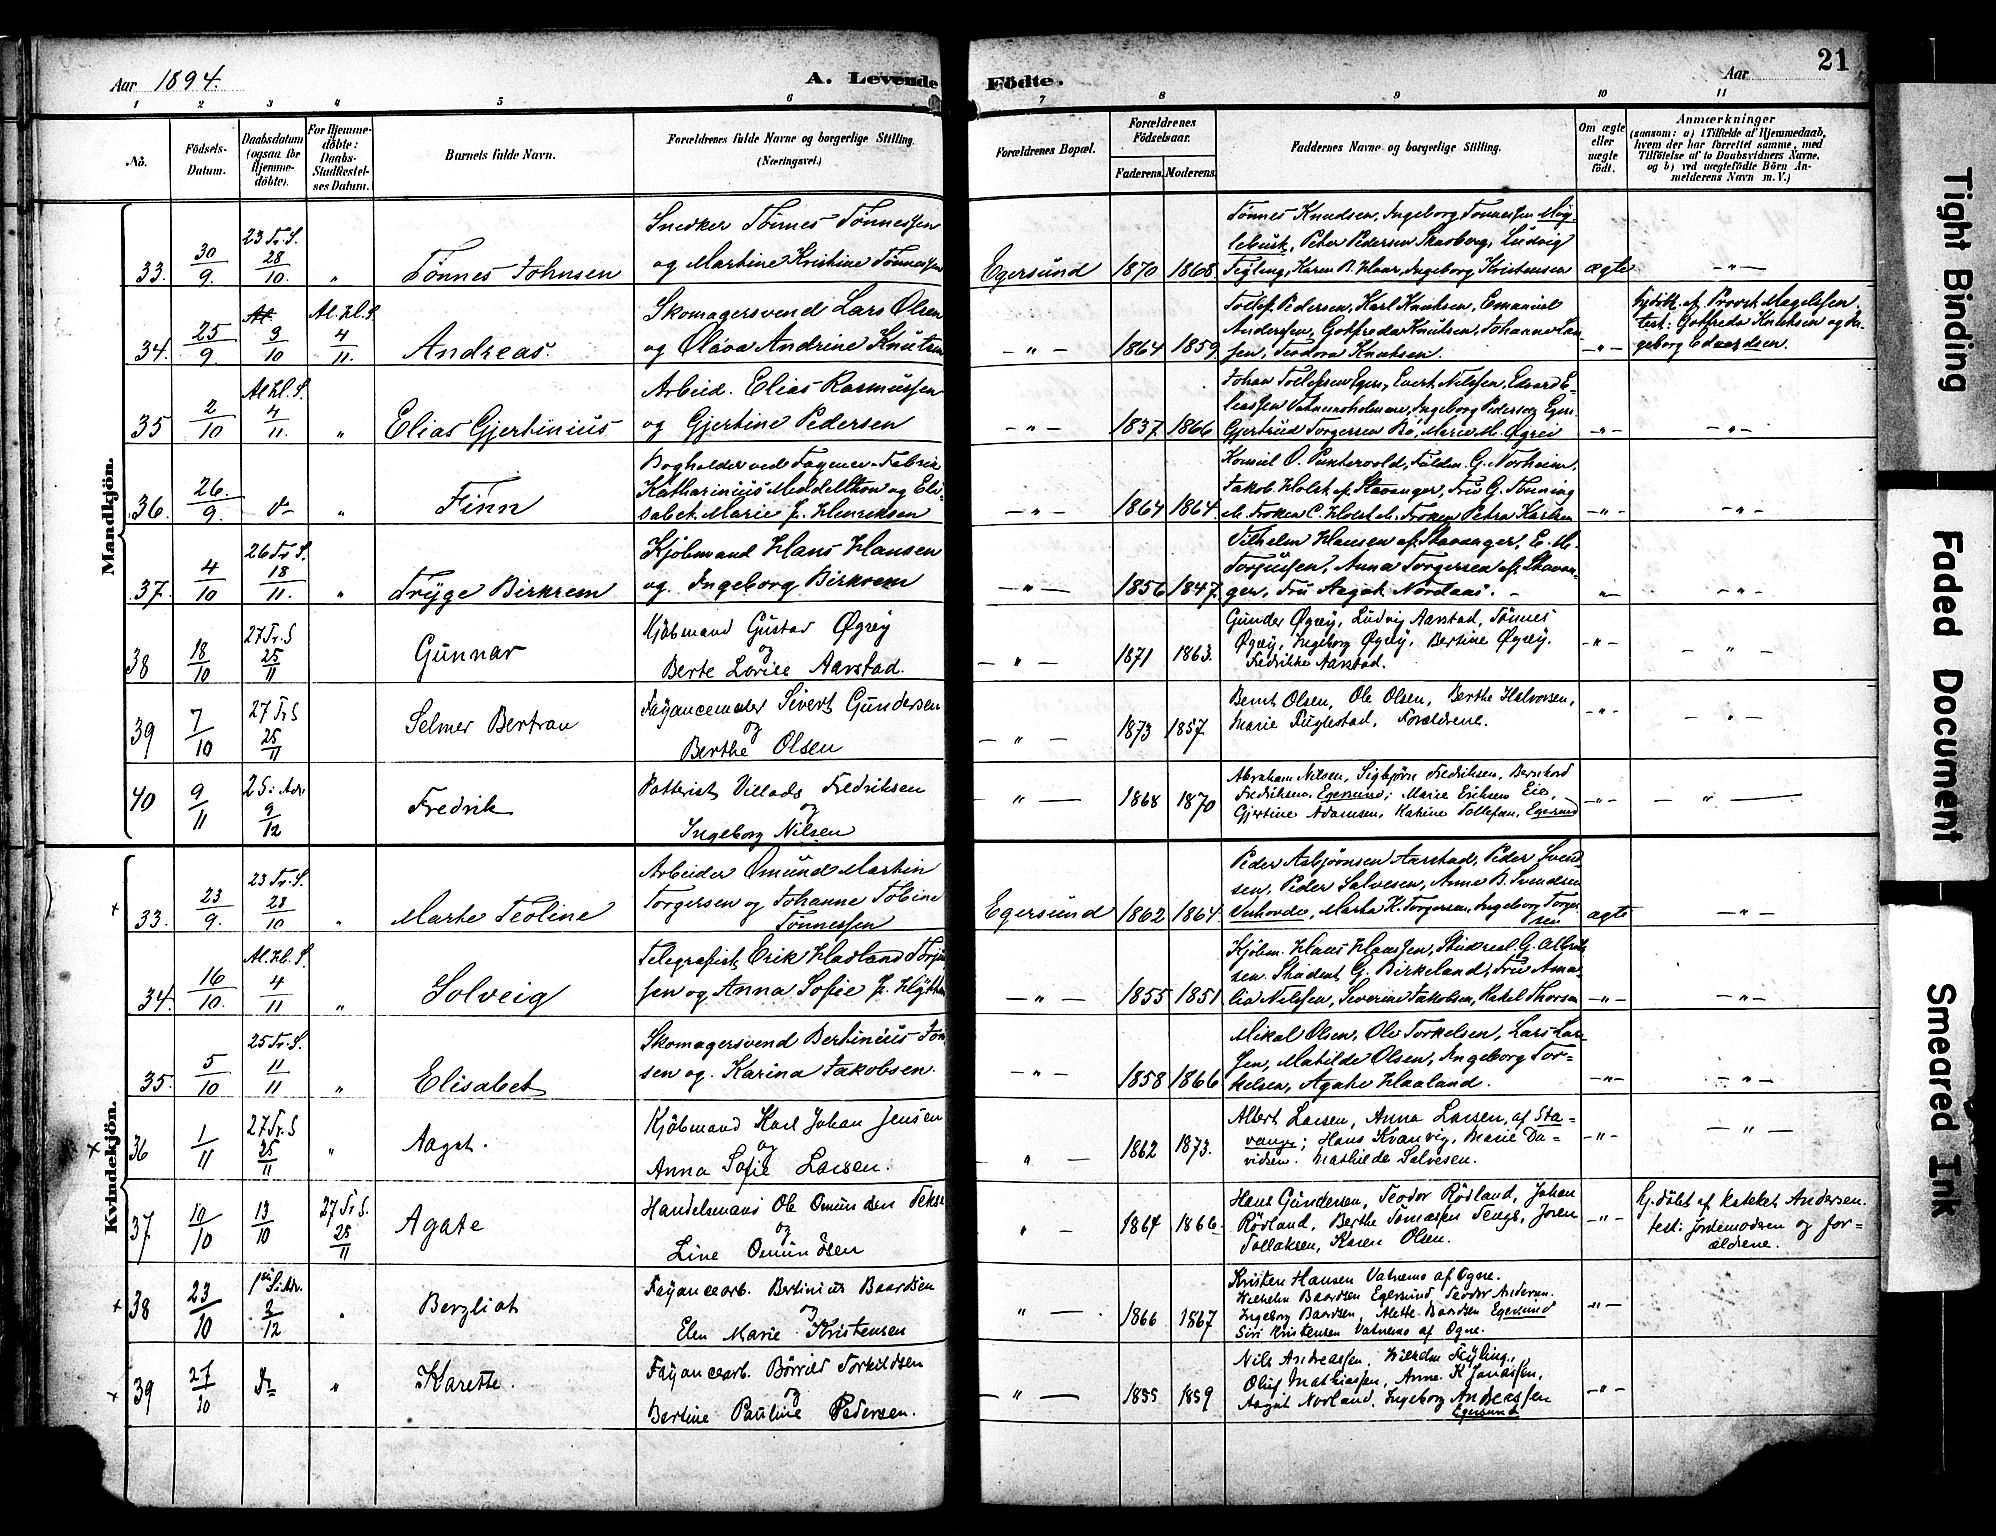 Aar 1894.
A. Levende
Födte.
Aar
21
1 2 3 4 5 6 7 8 9 10 11
No.
Födsels-Datum.
Daabsdatum (ogsaa for Hjemme-döbte).
For Hjemme-döbte: Daabs-Stadfæstel-ses Datum.
Barnets fulde Navn.
Forældrenes fulde Navne og borgerlige Stilling. (Næringsvei.)
Forældrenes Bopæl.
Forældrenes Födselsaar.
Faderens. Moderens.
Faddernes Navne og borgerlige Stilling.
Om ægte eller uægte födt.
Anmærkninger
(saasom: a) i Tilfælde af Hjemmedaab, hvem der har forrettet samme, med Tilföielse af to Daabsvidners Navne, og b) ved uægtefödte Börn An-melderens Navn m. V.)
Mandkjön.
33. 30/9. 23 Tr. S. 28/10. " Tønnes Johnsen
Snedker Tønnes Tønnessen
og Martine Kristine Tønnessen
Egersund 1870 1868
Tønnes Knudsen, Ingeborg Tønnessen Møg-
lebust, Peter Pedersen Skaaberg, Ludvig
Feyling, Karen B. Haar, Ingeborg Kristensen
ægte -"-
34. 25/9 3/10 Al. Hl. S. 4/11. Andreas.
Skomagersvend Lars Olsen
og Olava Andrine Knutsen
-"- 1864 1859
Tollef Pedersen, Karl Knutsen, Emanuel
Anderssen, Gotfreda Knutsen, Johanne Lar-
sen, Teodora Knutsen.
-"-
hjdøbt af Provst Magelssen
test: Gotfreda Knutsen og In-
geborg Edvardsen.
35 2/10 Al. Hl. S. 4/11. " Elias Gjertinius
Arbeid. Elias Rasmussen
og Gjertine Pedersen
-"- 1837. 1866
Johan Tollefsen Eger, Evert Nilssen, Edvard E-
liassen Vatnemsholmen, Ingeborg Pedersen Eger
Gjertrud Torgersen Bø, Marie M. Øgrei
-"- -"-
36. 26./9. d- " Finn
Bogholder ved Fayence-Fabrik
Katharinius Meddelthon og Eli-
sabet Marie f. Henriksen
-"- 1864 1864.
Konsul O. Puntervold, G. Norheim,
Jakob Holst af Stavanger, Fru G. Thening
Frøken C. Holst, Frøken Petra Karlsen
-"- -"-
37. 4/10 26 Tr. S. 18/11. " Trÿge Birkrem
Kjøbmand Hans Hansen
og. Ingeborg Birkrem
-"- 1856 1847.
Vilhelm Hansen af Stavanger, E. M.
Torjussen, Anna Torgersen af Stavan-
ger, Fru Aagot Nordaas.
-"- -"-
38 18/10 27 Tr. S 25/11 Gunnar
Kjøbmand Gustav Øgrey
og
Berte Lovise Aarstad.
-"- 1871 1863.
Gunder Øgrey, Ludvig Aarstad, Tønnes
Øgrey, Ingeborg Øgrey, Bertine Øgrey.
Fredrikke Aarstad.
-"- -"-
39 7/10 27 Tr. S 25/11 Selmer Bertran
Fayancemaler Sivert Gundersen
og
Berthe Olsen
-"- 1873 1857.
Bernt Olsen, Ole Olsen, Berthe Halvorsen,
Marie Fuglestad, Forældrene.
-"- -"-
40 9/11 2 S. i Adv. 9/12 Fredrik
Potterist Villads Fredriksen
og
Ingeborg Nilsen
-"- 1868 1870
Abraham Nilsen, Sigbjørn Fredriksen, Bernhard
Fredriksen, Egersund; Marie Eriksen Eie,
Gjertine Adamsen, Katrine Tollefsen, Egersund
-"- -"-
Kvindekjön.
+ 33. 23/9. 23 Tr. S. 28/10 " Marte Teoline
Arbeider Omund Martin
Torgersen og Johanne Tobine
Tønnessen
Egersund 1862 1864.
Peder Asbjørnsen Aarstad, Peder Svend-
sen, Peder Salvesen, Anna B. Svendsen
Veshovde, Marta K. Torgersen, Ingeborg Torger-
sen
ægte -"-
34. 16/10. Al. Hl. S. 4/11 " Solveig
Telegrafist Erik Hadland Torjus-
sen og Anna Sofie f.
-"- 1855 1851
Kjøbm. Hans Hanssen, G. Albrekt-
sen. Student G. Birkeland, Fru Ama-
lia Nilssen, Severine Jakobsen, Rakel Thorsen
-"- -"-
35. 5/10 25 Tr. S. 11/11 " Elisabet
Skomagersvend Bertinius Jon-
sen og. Karina Jakobsen.
-"- 1858 1866
Mikal Olsen, Ole Torkelsen, Lars Lar-
sen, Matilde Olsen, Ingeborg Tor-
kelsen, Agathe Haaland.
-"- -"-
x 36 1/11 27 Tr. S 25/11 " Aagot.
Kjøbmand Karl Johan Jensen
og
Anna Sofie Larsen.
" - 1862 1873.
Albert Larsen, Anna Larsen, af Sta-
vanger; Hans Kvanvig, Marie Da-
vidsen. Mathilde Salvesen.
-"- -"-
37 10/10 13/10 27 Tr. S. 25/11 Agate
Handelsmand Ole Omundsen Tekse
og
Line Omundsen
" - 1867 1866
Hans Gundersen, Teodor Rödland, Johan
Rödland, Berthe Tomassen Tengs, Joren
Tollaksen, Karen Olsen.
-"-
hj. döbt af kateket Andersen.
test: Jordemodren og for-
ældrene.
+ 38 23/10 1ste S. i Adv. 2/12 " Bergliot
Fayancearb. Bertinius Baardsen
og
Elen Marie Kristensen
" -. 1866 1867
Kristen Hansen Vatnemo af Ogne.
Wilhelm Baardsen Egersund Teodor Andersen.
Ingeborg Baardsen, Alette Baardsen Egersund
Siri Kristensen Vatnemo af Ogne.
-"-
+ 39 27/10 Do " Karette.
Fayancearb. Börrild Torkildsen
og
Bertine Pauline Pedersen.
-"- 1855 1859
Nils Andreassen, Wilhelm Feyling,
Oluf Mathiassen, Anne K. Jonassen,
Aagot Norland, Ingeborg Andreassen
Egersund
-"-
Tight Binding
Faded Document
Smeared Ink